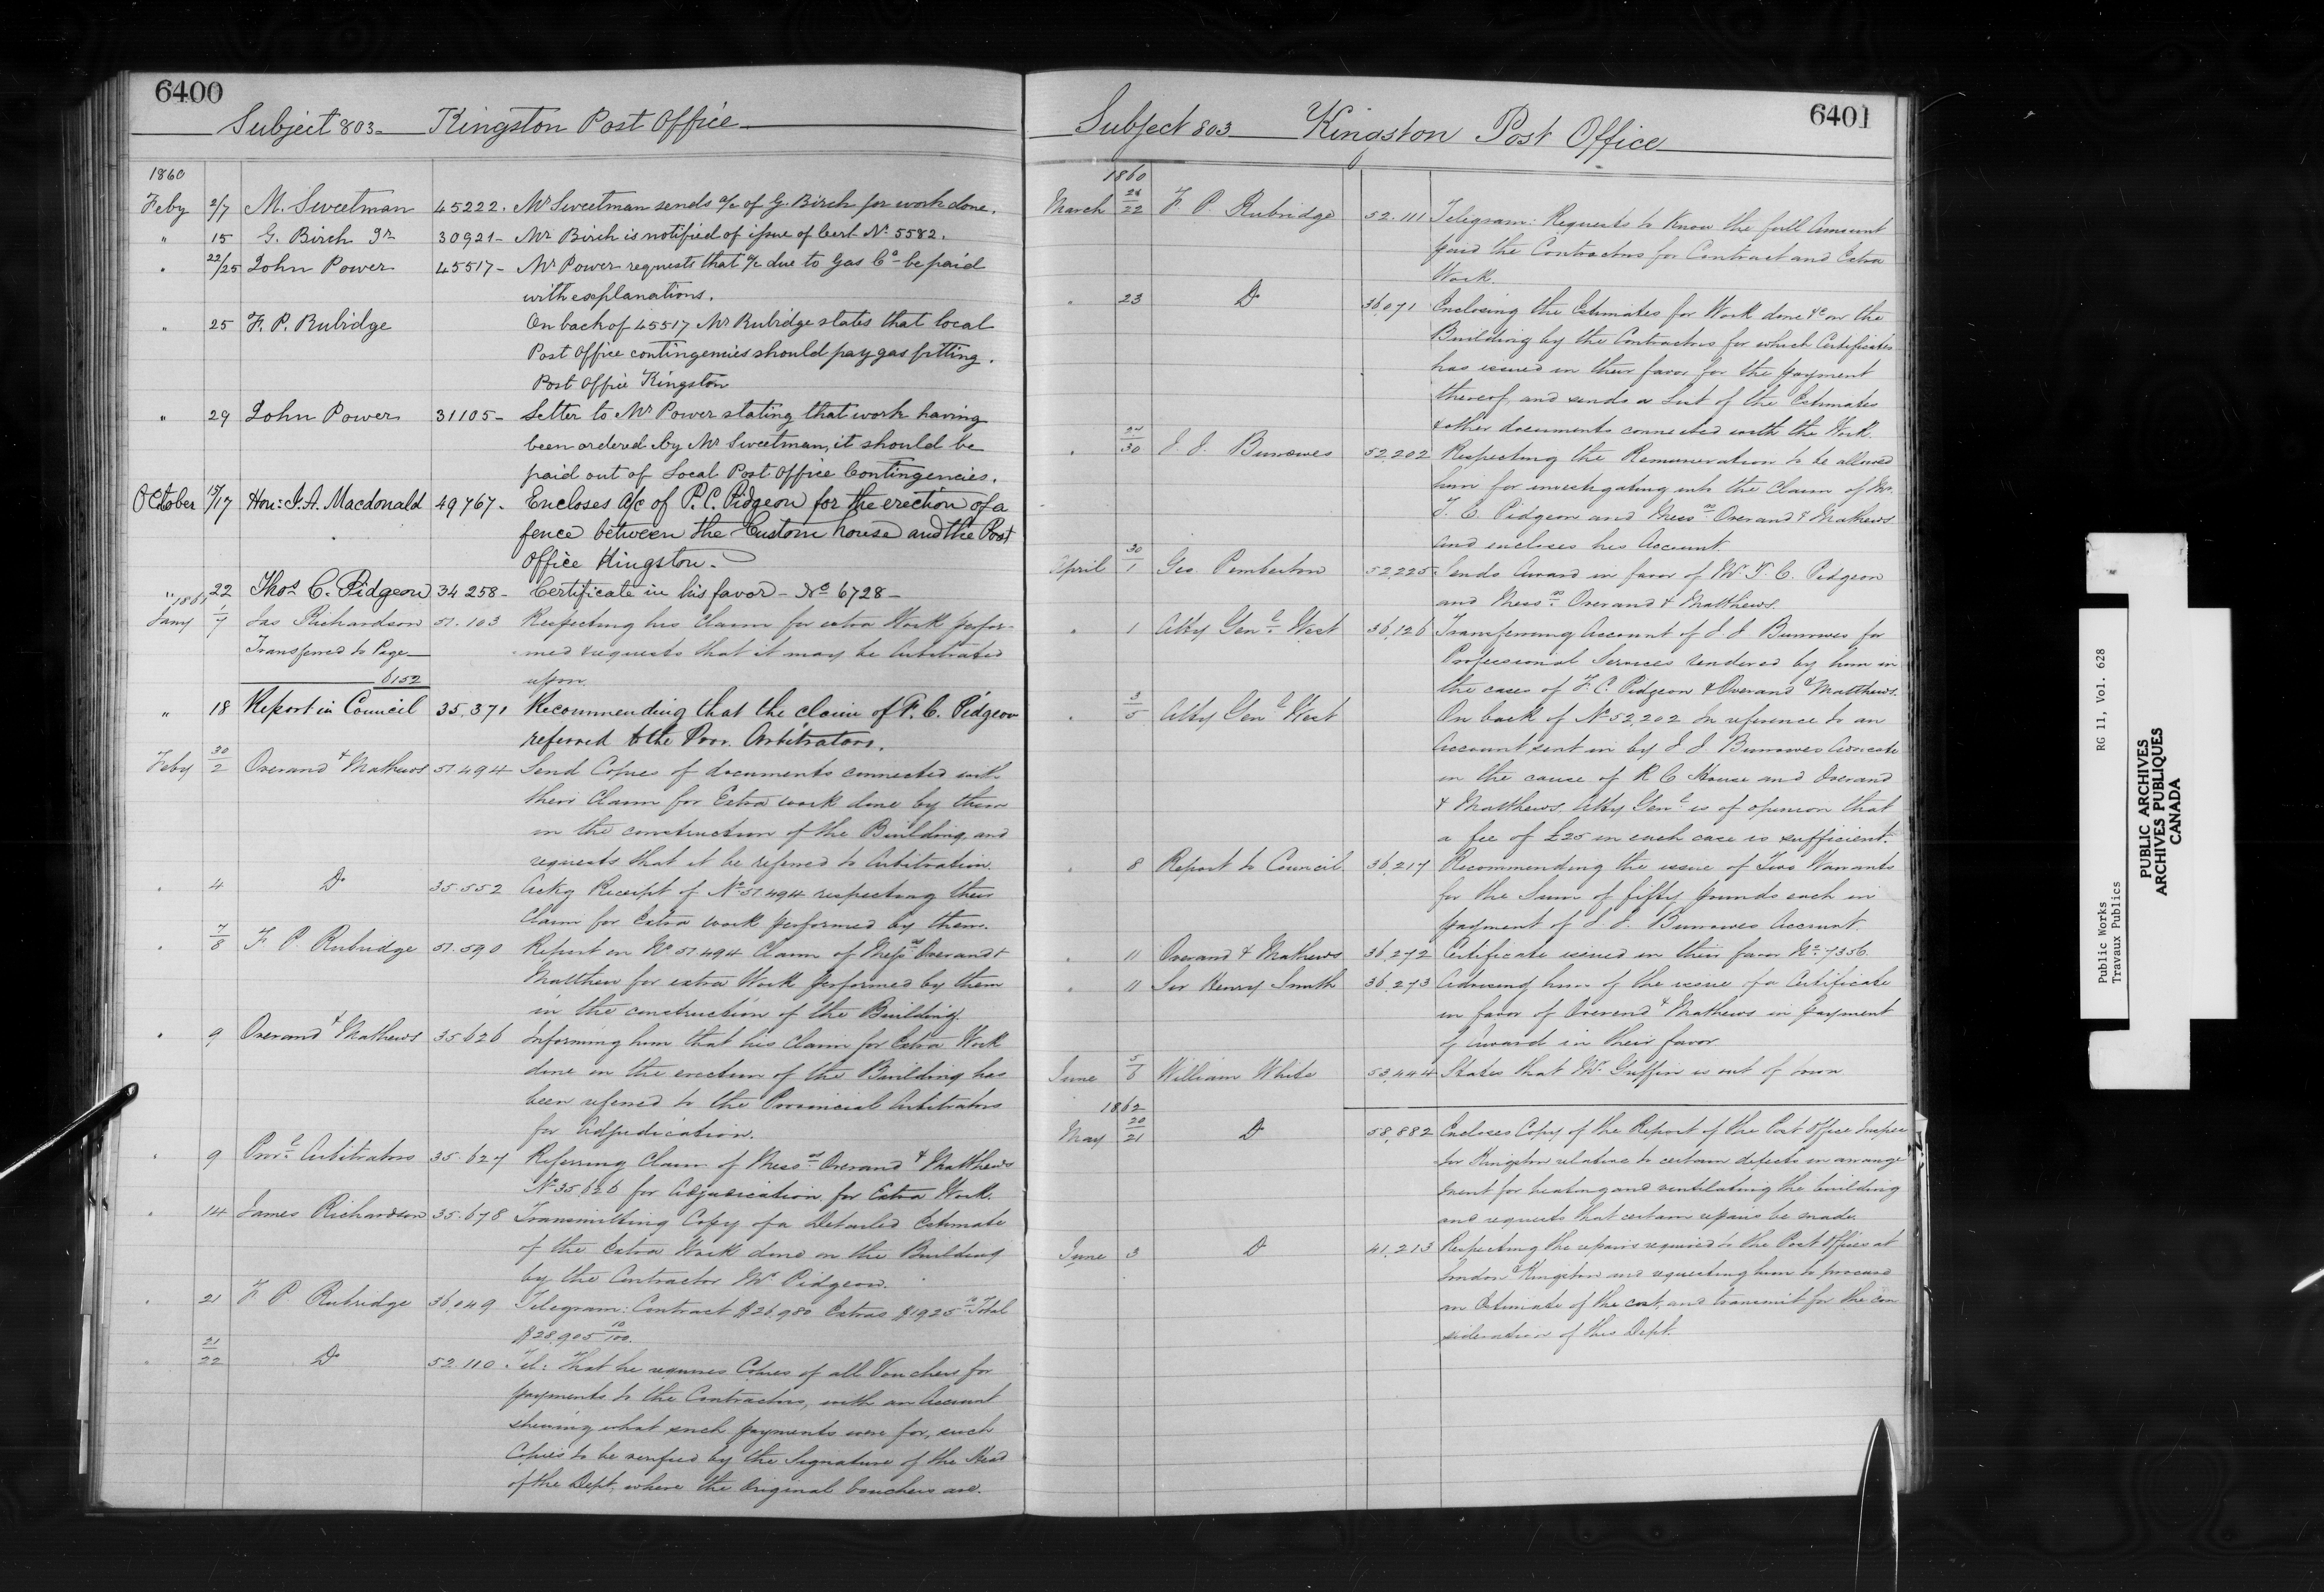 6400
Subject 803 - Kingston Post Office
1860
Feby 2/7 M. Sweetman 45222. Mr Sweetman sends a/c of G. Birch for work done.
" 15 G. Birch Jr 30921 - Mr Birch is notified of issue of Cert No 5582.
" 22/25 John Power 45517 - Mr Power requests that a/c due to Gas Co - be paid
with explanations.
" 25 F. P. Rubidge On back of 45517 Mr Rubidge states that local
Post Office contingencies should pay gas fitting.
Post Office Kingston
" 29 John Power 31105 - Letter to Mr Power stating that work having
been ordered by Mr Sweetman, it should be
paid out of Local Post Office Contingencies.
October 15/17 Hon: J. A. Macdonald 49767. - Encloses a/c of P. C. Pidgeon for the erection of a
fence between the Custom house and the Post
Office Kingston -
" 22 Thos C. Pidgeon 34258 - Certificate in his favor - No 6728 -
1861
Jany 1/7 Jas Richardson 51.103 Respecting his Claim for extra Work perfor-
Transferred to Page - med & requests that it may be Arbitrated
6152 upon.
" 18 Report in Council 35,371 Recommending that the claim of F. C. Pidgeon
referred to the Prov. Arbitrators.
Feby 30/2 Overand & Mathews 51494 Send Copies of documents connected with
their Claim for Extra work done by them
in the construction of the Building and
requests that it be referred to Arbitration.
" 4 Do 35.552 Ackg Receipt of No 51494 respecting their
Claim for Extra work performed by them.
" 7/8 F. P. Rubridge 51.590 Report on No 51494 Claim of Messrs Overand &
Matthew for extra Work performed by them
in the construction of the Building.
" 9 Overand & Mathews 35.626 Informing him that his Claim for Extra Work
done in the erection of the Building has
been referred to the Provincial Arbitrators
for Adjudication.
" 9 Provl Arbitrators 35.627 Referring Claim of Messrs Overand & Matthews
No 35,626 for Adjudication for Extra Work.
" 14 James Richardson 35.678 Transmitting Copy of a Detailed Estimate
of the Extra Work done on the Building
by the Contractor Mr Pidgeon.
" 21 F. P. Rubridge 36,049 Telegram: Contract $26,980 Extras $1925 Total
$28,905 10/100.
" 21/22 Do 52.110 Tel: That he requires Copies of all Vouchers for
payments to the Contractors, with an Account
shewing what such payments were for, such
Copies to be verified by the Signature of the Head
of the Dept. where the Original Vouchers are.
6401
Subject 803 Kingston Post Office
1860
March 21/22 F. P. Rubridge 52.111 Telegram: Requests to Know the full Amount
paid the Contractors for Contract and Extra
Work.
" 23 Do 36,071 Enclosing the Estimates for Work done &c on the
Building by the Contractors for which Certificates
has issued in their favor for the payment
thereof, and sends a List of the Estimates
& other documents connected with the Work.
" 24/30 J. J. Burrowes 52,202 Respecting the Remuneration to be allowed
him for investigating into the Claim of Mr.
T. C. Pidgeon and Messrs Overand & Mathews
and encloses his Account.
April 30/1 Geo Pemberton 52,225 Sends Award in favor of Mr T. C. Pidgeon
and Messrs Overand & Matthews.
" 1 Atty Genl West 36,126 Transferring Account of J. J. Burrowes for
Professional Services rendered by him in
the cases of F. C. Pidgeon & Overand & Matthews.
" 3/5 Atty Genl West On back of No 52,202 In reference to an
Account sent in by J. J. Burrowes Advocate
in the cause of R C House and Overand
& Matthews. Atty Genl is of opinion that
a fee of £25 in each case is sufficient.
" 8 Report to Council 36,217 Recommending the issue of Two Warrants
for the Sum of fifty pounds each in
payment of J. J. Burrowes Account.
" 11 Overand & Mathews 36,272 Certificate issued in their favor No 7356.
" 11 Sir Henry Smith 36,273 Advising him of the issue of a Certificate
in favor of Overend & Mathews in payment
of Award in their favor
June 5/6 William White 53,444 States that Mr Griffin is out of town
1862
May 20/21 Do 58,882 Encloses Copy of the Report of the Post Office Inspec
tor Kingston relative to certain defects in arrange
ment for heating and ventilating the building
and requests that certain repairs be made.
June 3 Do 41,213 Respecting the repairs required to the Post Offices at
London & Kingston and requesting him to procure
an Estimate of the cost, and transmit for the con
sideration of this Dept.
Public Works RG 11, Vol. 628
Travaux Publics
PUBLIC ARCHIVES
ARCHIVES PUBLIQUES
CANADA